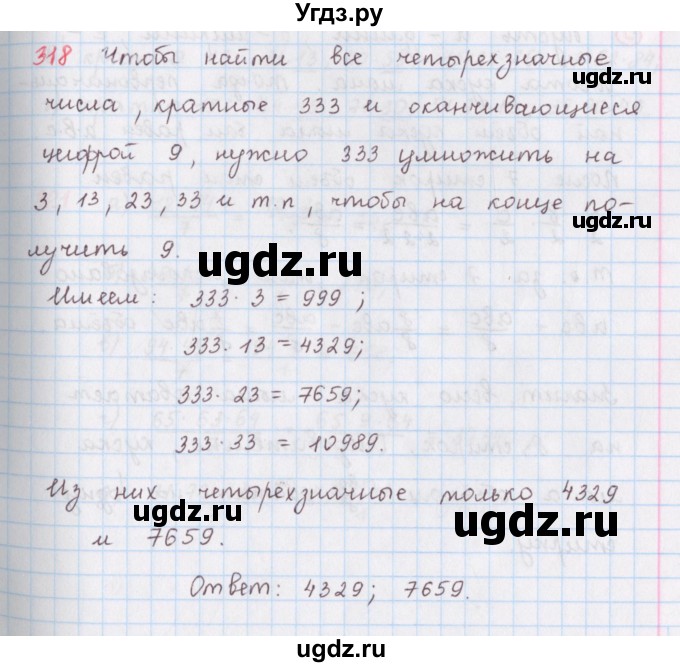 Угдз.ру
318 Чтобы найти все четырехзначные
числа, кратные 333 и оканчивающиеся
цифрой 9, нужно 333 умножить на
3, 13, 23, 33 и т.п, чтобы на конце по-
лучить 9.
Имеем: 333 · 3 = 999;
333 · 13 = 4329;
333 · 23 = 7659;
333 · 33 = 10989.
Из них четырёхзначные только 4329
и 7659.
Ответ: 4329; 7659.
ugdz.ru
ugdz.ru
ugdz.ru
ugdz.ru
ugdz.ru
ugdz.ru
ugdz.ru